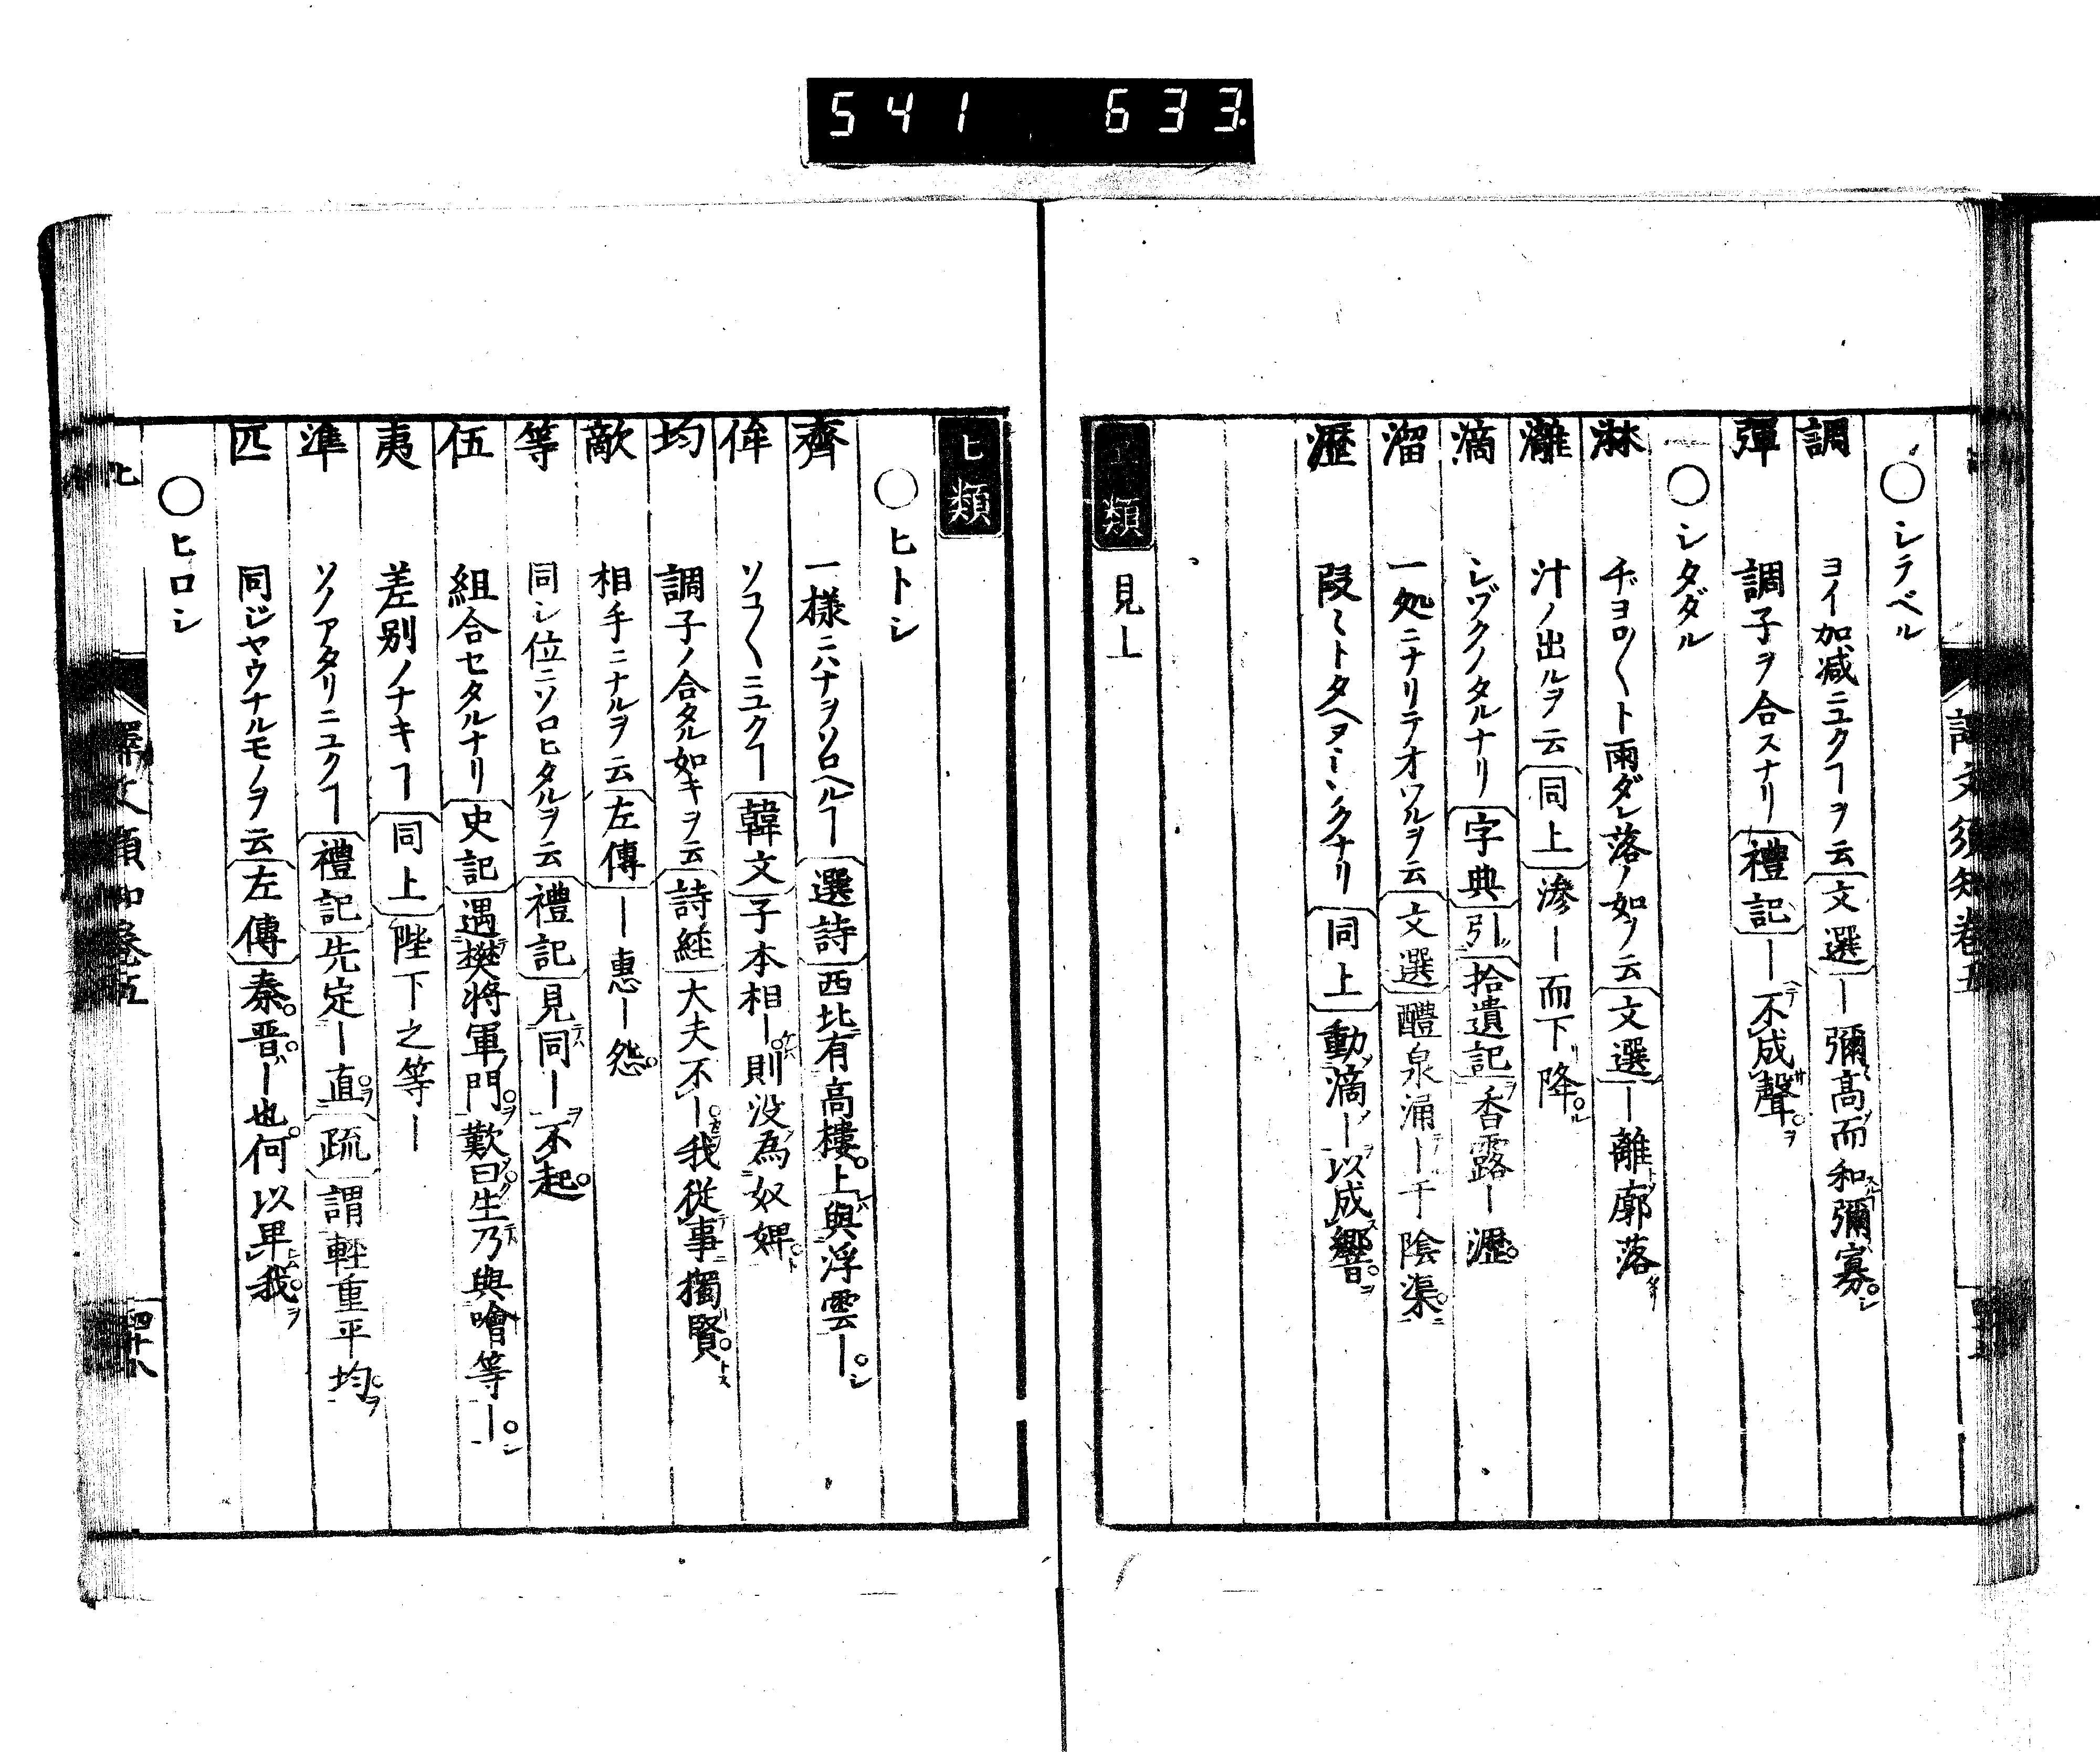 541 633
○シラベル
調 ヨイ加减ニユクヿヲ云 文選 ―彌高而和彌寡シ
彈 調子ヲ合スナリ 禮記 ―不成聲ヲ
○シタダル
淋 チヨロ〱ト雨ダレ落ノ如ヲ云 文選 ―離廓落
灕 汁ノ出ルヲ云 同上 滲―而下降ル
滴 シヅクノタルナリ 字典 引 拾遺記 香露―瀝
溜 一処ニナリテオツルヲ云 文選 醴泉涌―于陰渠ニ
瀝 段〻トタヘタ 同上 動滴―以成響ヲ
類 見上
譯文須知卷五
ヒ類
○ヒトシ
齊 一様ニハナヲソロヘルヿ 選詩 西北有高樓上與浮雲―シ
侔 ソコ〱ニユクヿ 韓文 子本相―則没為奴婢ト
均 調子ノ合タル如キヲ云 詩経 大夫不―我従事獨賢トス
敵 相手ニナルヲ云 左傳 ―惠―怨
等 同シ位ニソロヒタルヲ云 禮記 見同―不起
伍 組合セタルナリ 史記 遇樊将軍門ヲ歎曰生乃與噲等―シ
夷 差别ノナキヿ 同上 陛下之等―
準 ソノアタリニユクヿ 禮記 先定―直ヲ 疏 謂軽重平均ヲ
匹 同ジヤウナルモノヲ云 左傳 秦晋―也何以卑我ヲ
○ヒロシ
ヒ 譯文須知卷五 四十八